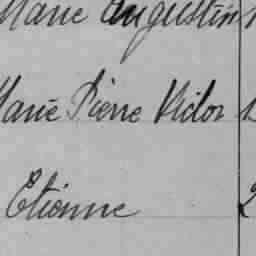 Marie Augustin
Marie Pierre Victor
Etienne 2